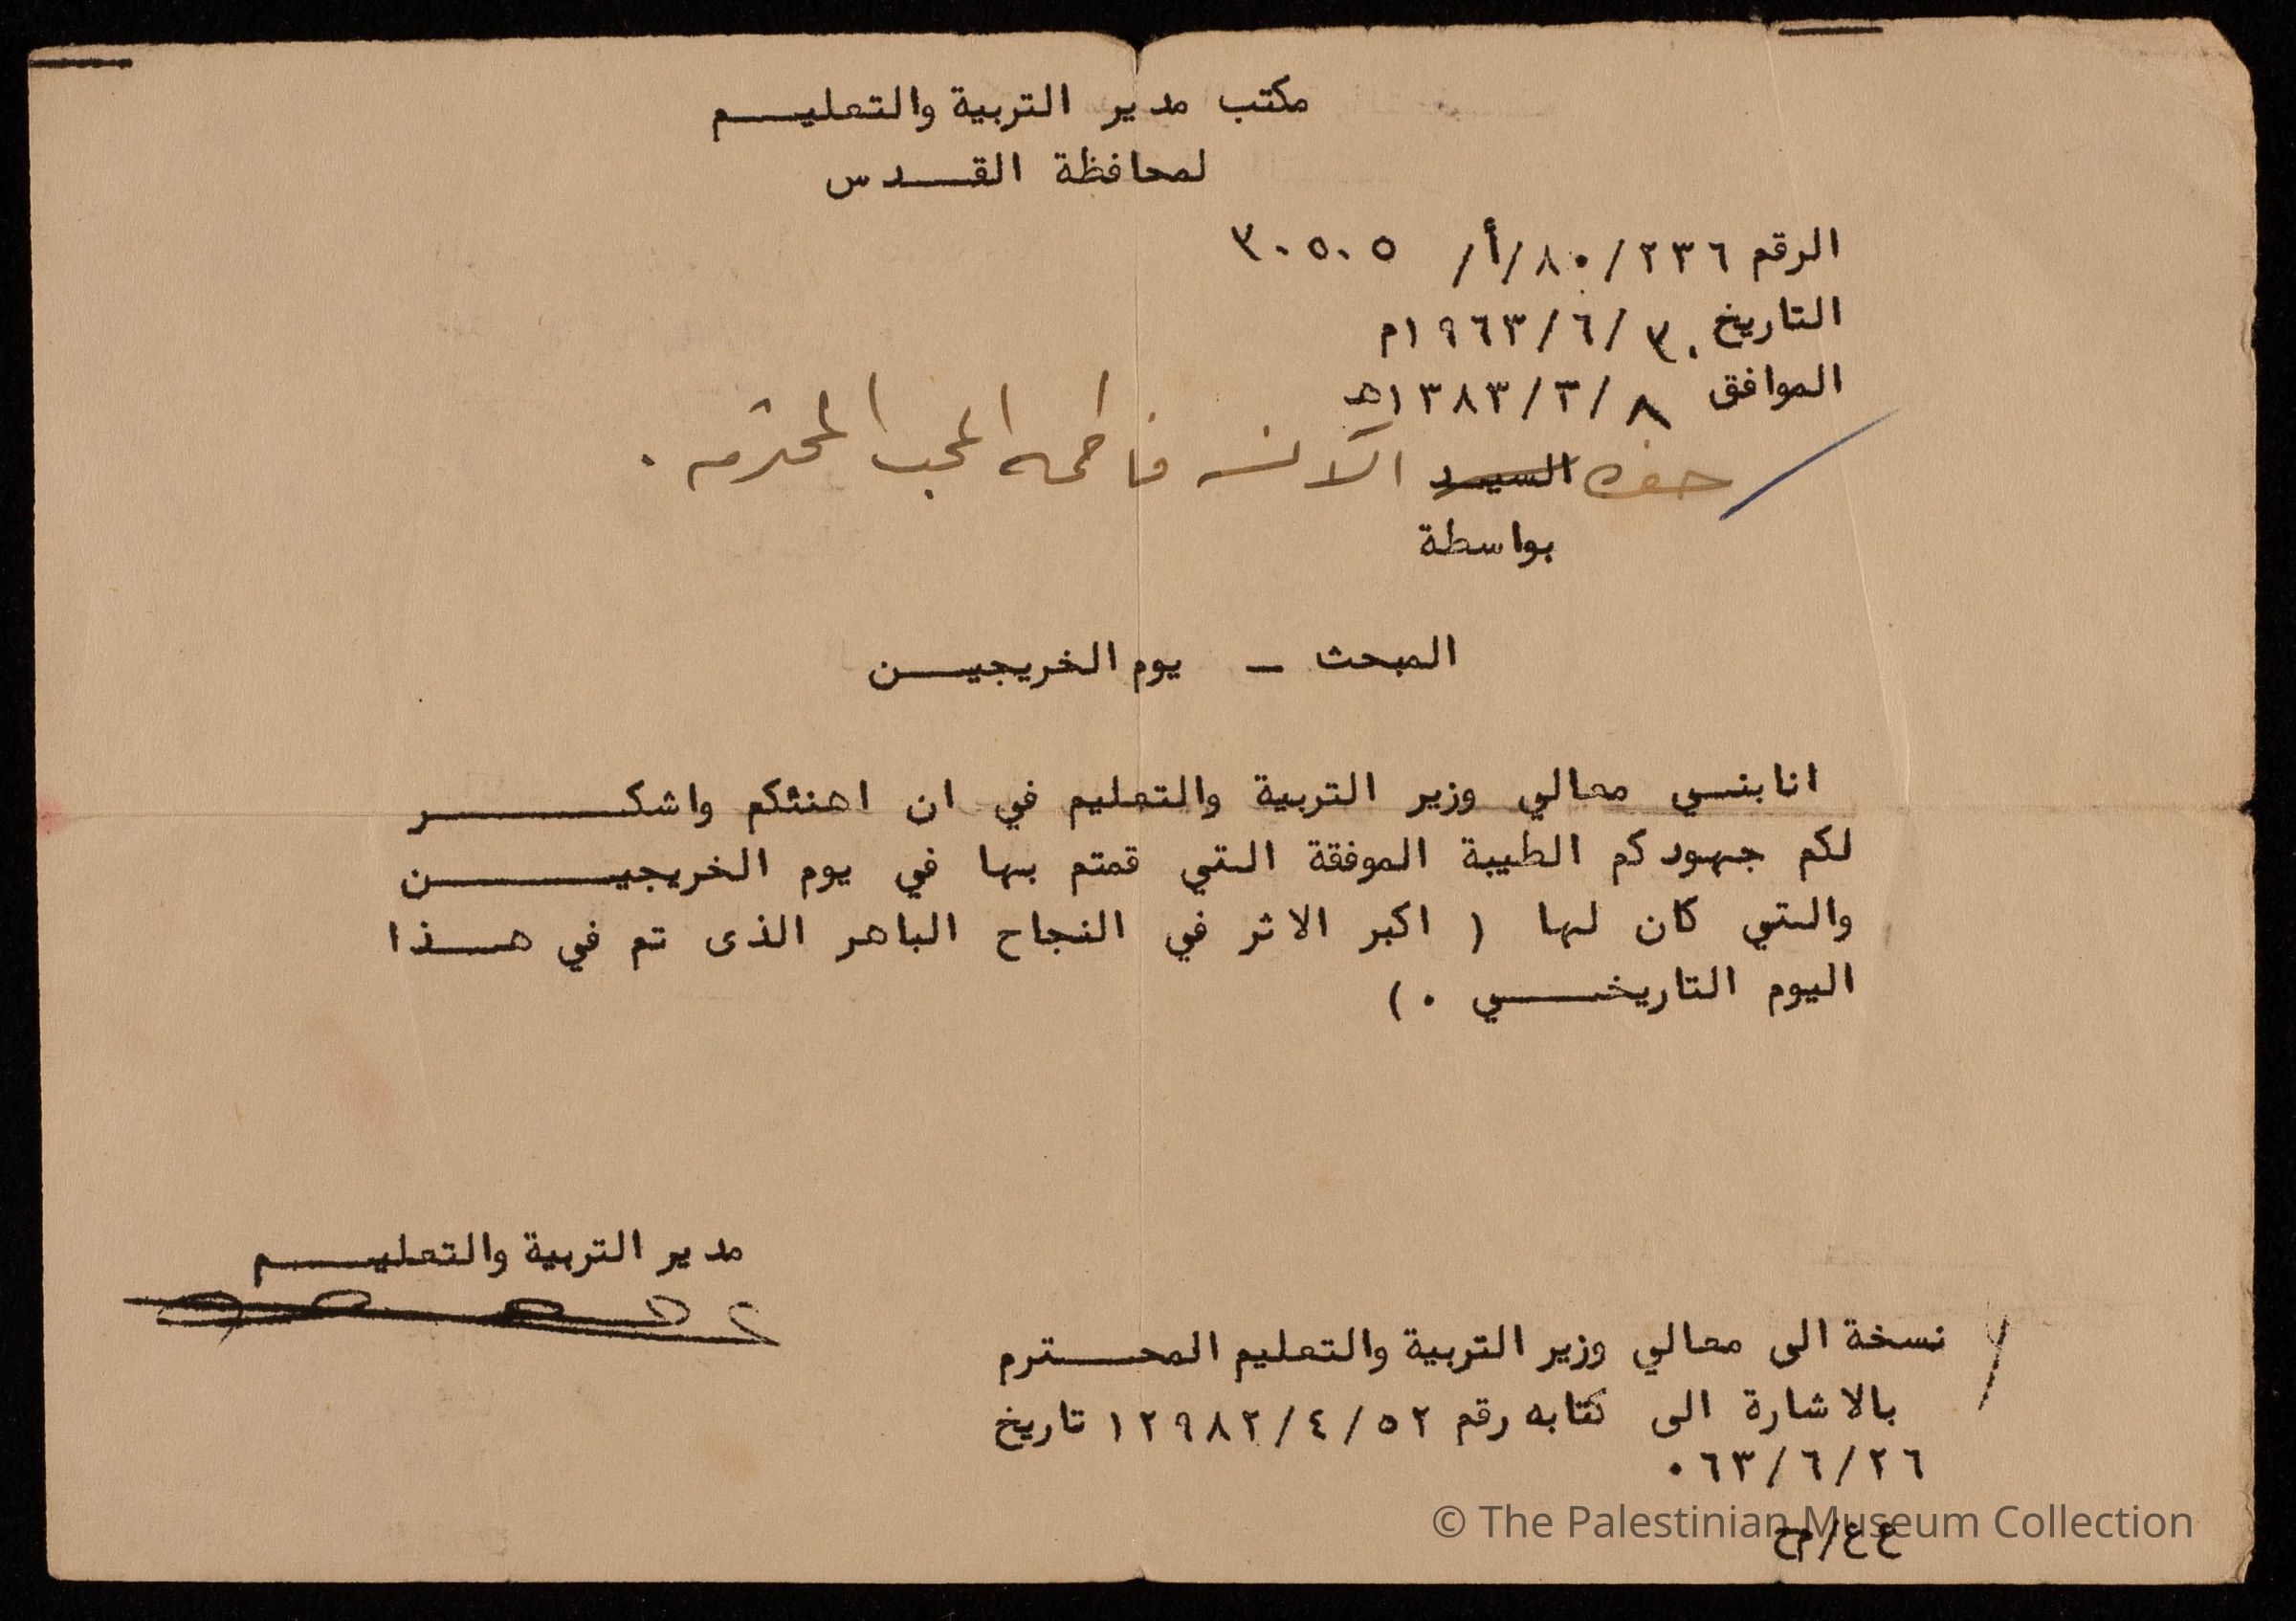 مكتب مدير التربية والتعليم
لمحافظة القدس
الرقم ٢٣٦/٨٠/أ/ ٣٠٥٠٥
التاريخ ٣٠/٦/١٩٦٣م
الموافق ٨/٣/١٣٨٣هـ
حضرة السيد الآنسه فاطمه المحب المحترمه .
بواسطة
المبحث – يوم الخريجين
انابني معالي وزير التربية والتعليم في ان اهنئكم واشكر
لكم جهودكم الطيبة الموفقة التي قمتم بها في يوم الخريجين
والتي كان لها ( اكبر الاثر في النجاح الباهر الذى تم في هذا
اليوم التاريخي ٠ )
مدير التربية والتعليم
نسخة الى معالي وزير التربية والتعليم المحترم
بالاشارة الى كتابه رقم ٥٢/٤/١٢٩٨٢ تاريخ
٢٦/٦/٦٣ ٠
© The Palestinian Museum Collection
ع ع/م ح